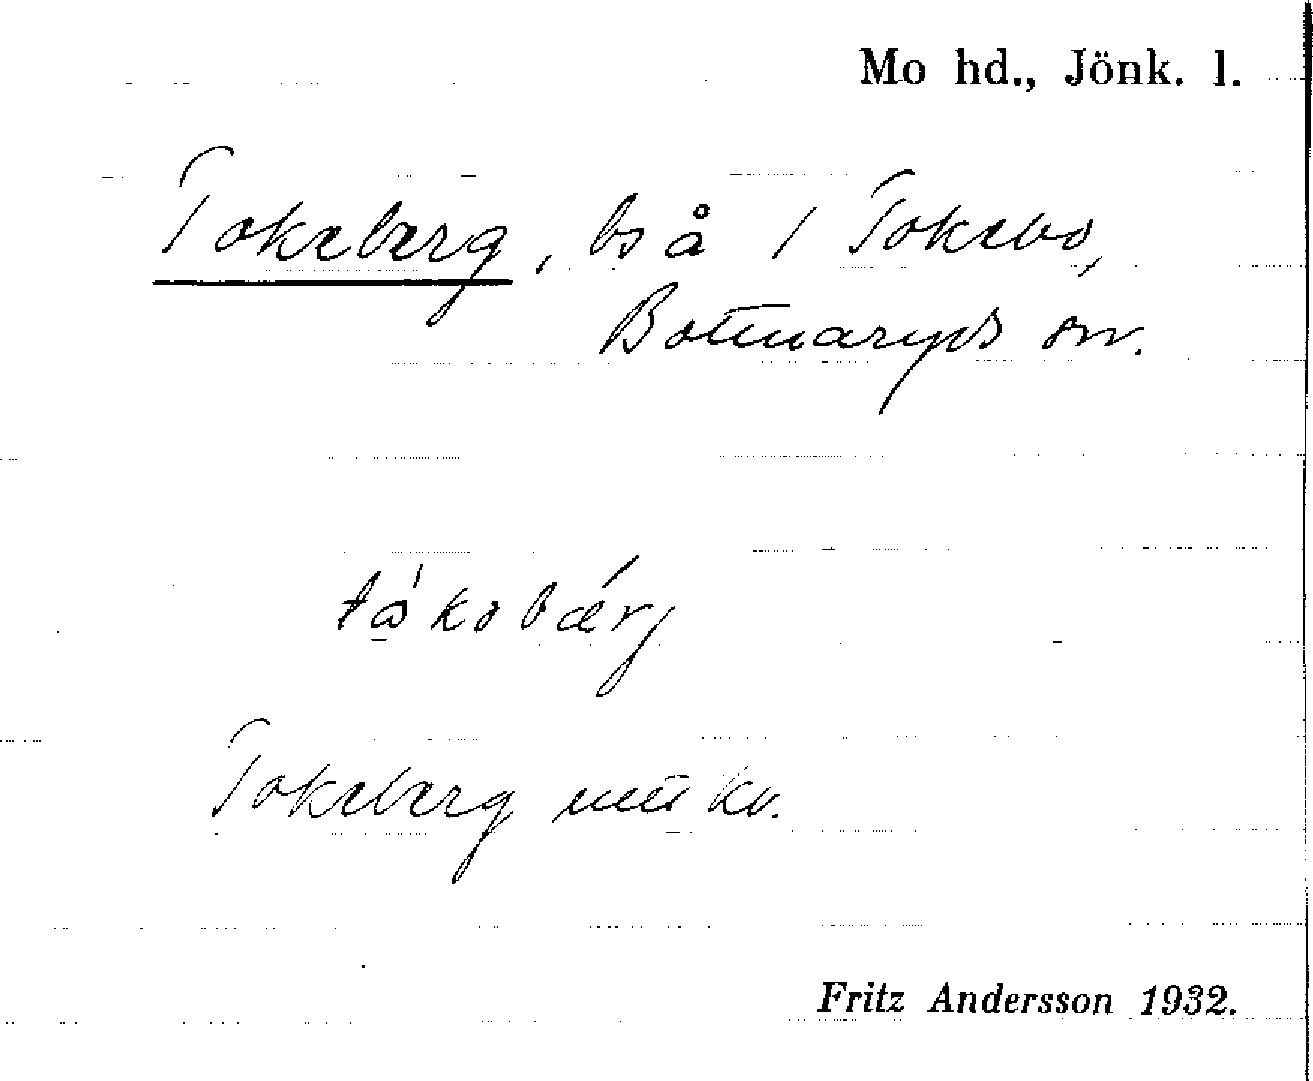 Mo hd., Jönk. l.
Tokeberg, bs å 1 Tokebo,
Bottnaryds sn.
Tokeberg
Fritz Andersson 1932.